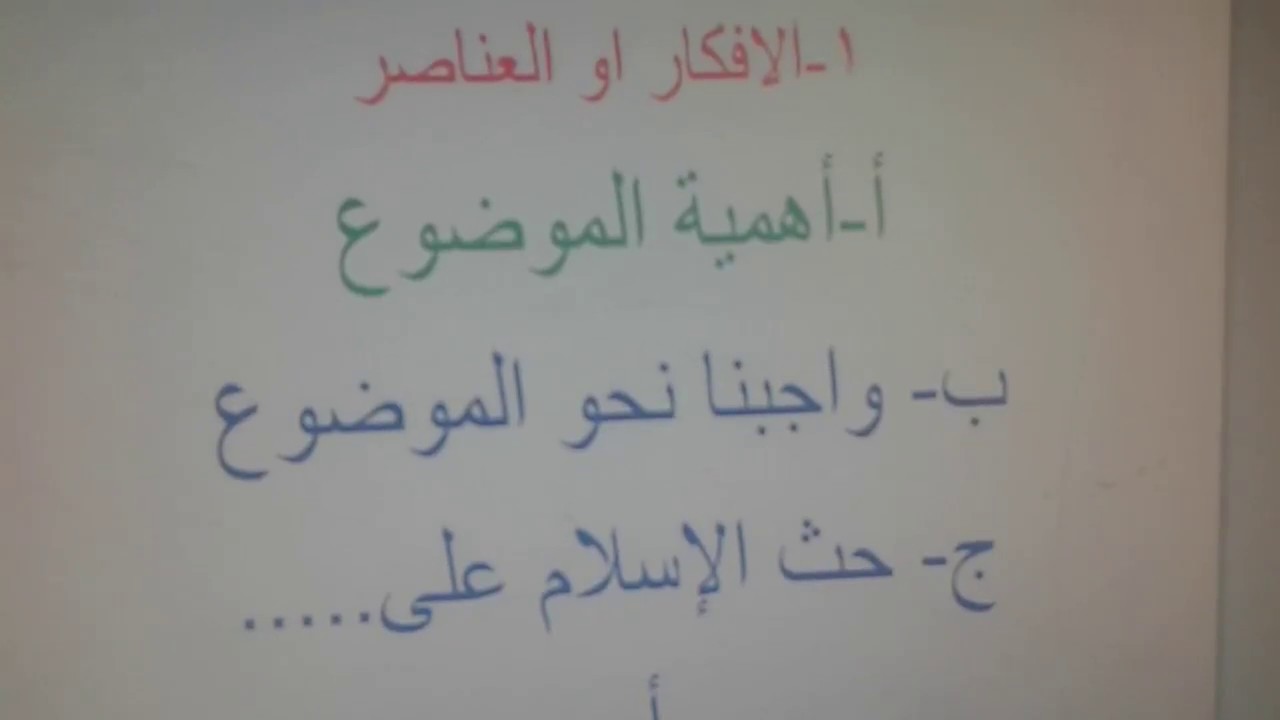 ١-الافكار او العناصر
أ-أهمية الموضوع
ب- واجبنا نحو الموضوع
ج- حث الإسلام على.....